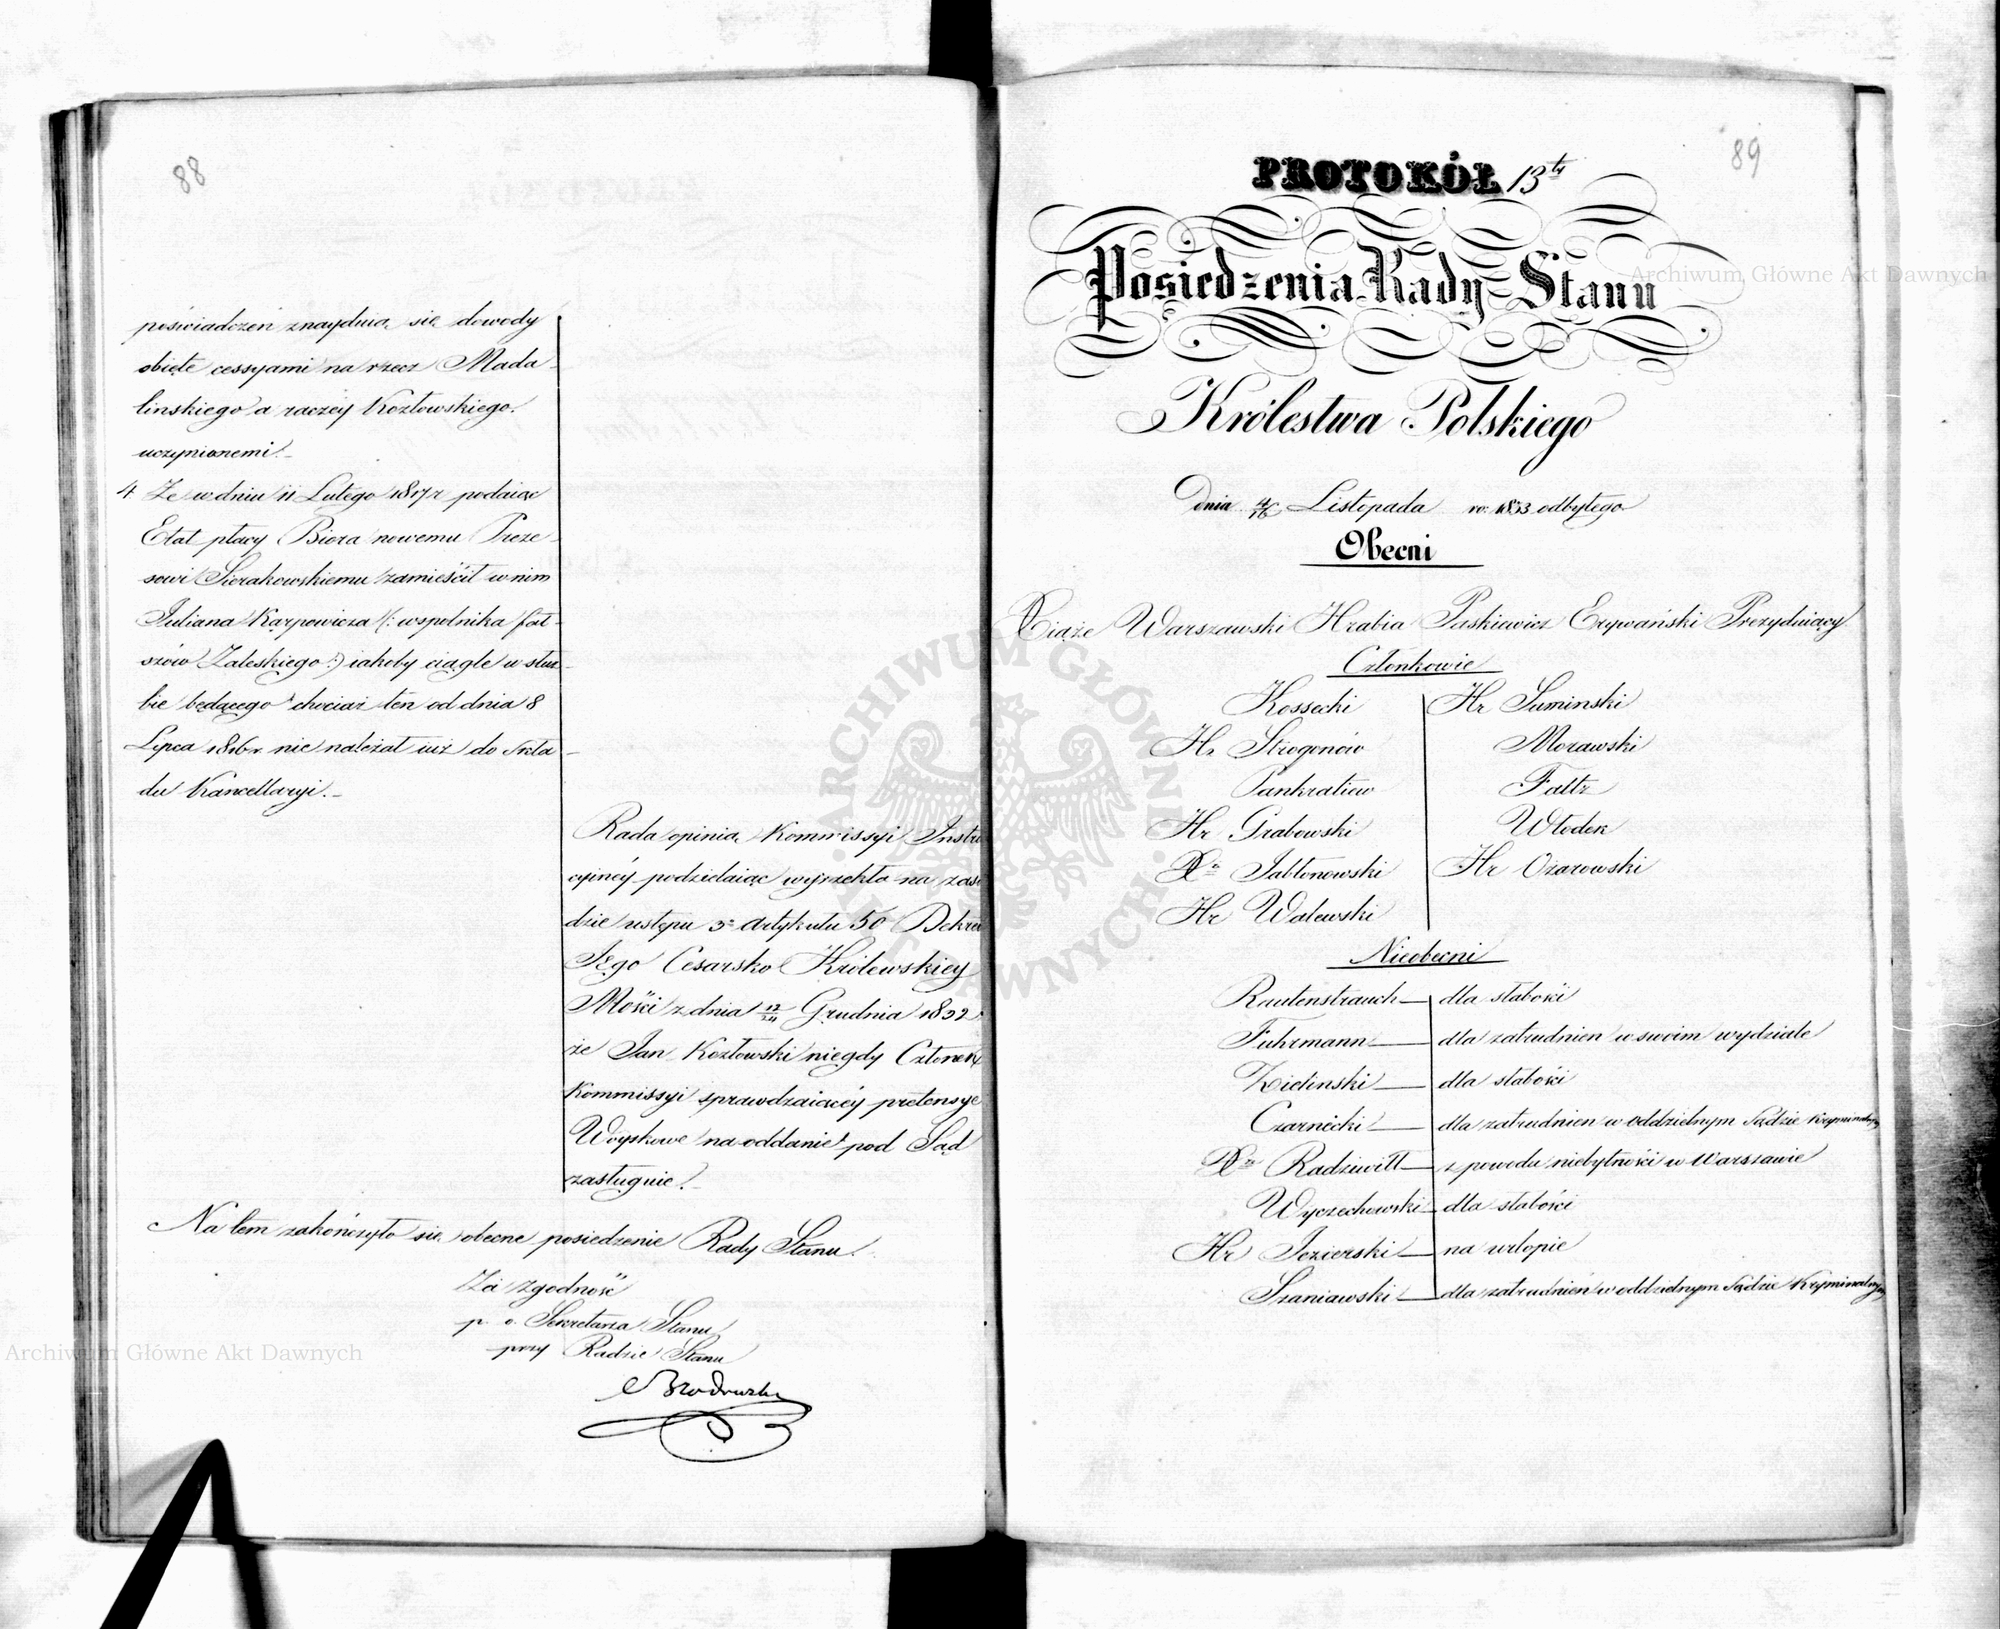 88
poświadczeń znayduią się dowody
obięte cessyami na rzecz Mada-
linskiego a raczéy Kozłowskiego.
uczynionemi._
4 Ze w dniu 11 Lutego 1817 r podaiąc
Etat płacy Biora nowemu Preze-
sowi Sierakowskiemu zamieścił w nim
Juliana Karpowicza (: wspolnika fał-
szów Zaleskiego:) iakoby ciągle w służ-
bie będącego chociaż ten od dnia 8
Lipca 1816 r. nie należał iuż do skła-
du Kancellaryi._
Rada opinią Kommissyi Instru
cyinéy podzielaiąc wyrzekła na zasa
dzie ustępu 3º Artykułu 50 Dekre
Jego Cesarsko Królewskiey
Mości z dnia 12/24 Grudnia 1832
że Jan Kozłowski niegdy Członek
Kommissyi sprawdzaiącéy pretensye
Woyskowe na oddanie pod Sąd
zasługuie._
Na tem zakończyło się obecne posiedzenie Rady Stanu.
Za zgodność
p. o. Sekretarza Stanu
przy Radzie Stanu
89
PROTOKÓŁ 13ty
Posiedzenia Rady Stanu
Królestwa Polskiego
Dnia 4/16 Listopada ro: 1833 odbytego
Obecni
Xiąże Warszawski Hrabia Paskiewicz Erywański Prezyduiący
Członkowie
Kossecki
Hr Strogonów
Pankratiew
Hr Grabowski
Xże Jabłonowski
Hr Walewski
Hr Suminski
Morawski
Faltz
Włodek
Hr Ożarowski
Nieobecni
Rautenstrauch — dla słabości
Fuhrmann — dla zatrudnien w swoim wydziale
Zielinski — dla słabości
Czarnecki — dla zatrudnien w oddzielnym Sądzie Kryminalnym
Xże Radziwiłł — z powodu niebytności w Warszawie
Wyczechowski — dla słabości
Hr Jezierski — na urlopie
Szaniawski — dla zatrudnień w oddzielnym Sądzie Kryminalnym
Archiwum Główne Akt Dawnych
Archiwum Główne Akt Dawnych
ARCHIWUM GŁÓWNE AKT DAWNYCH